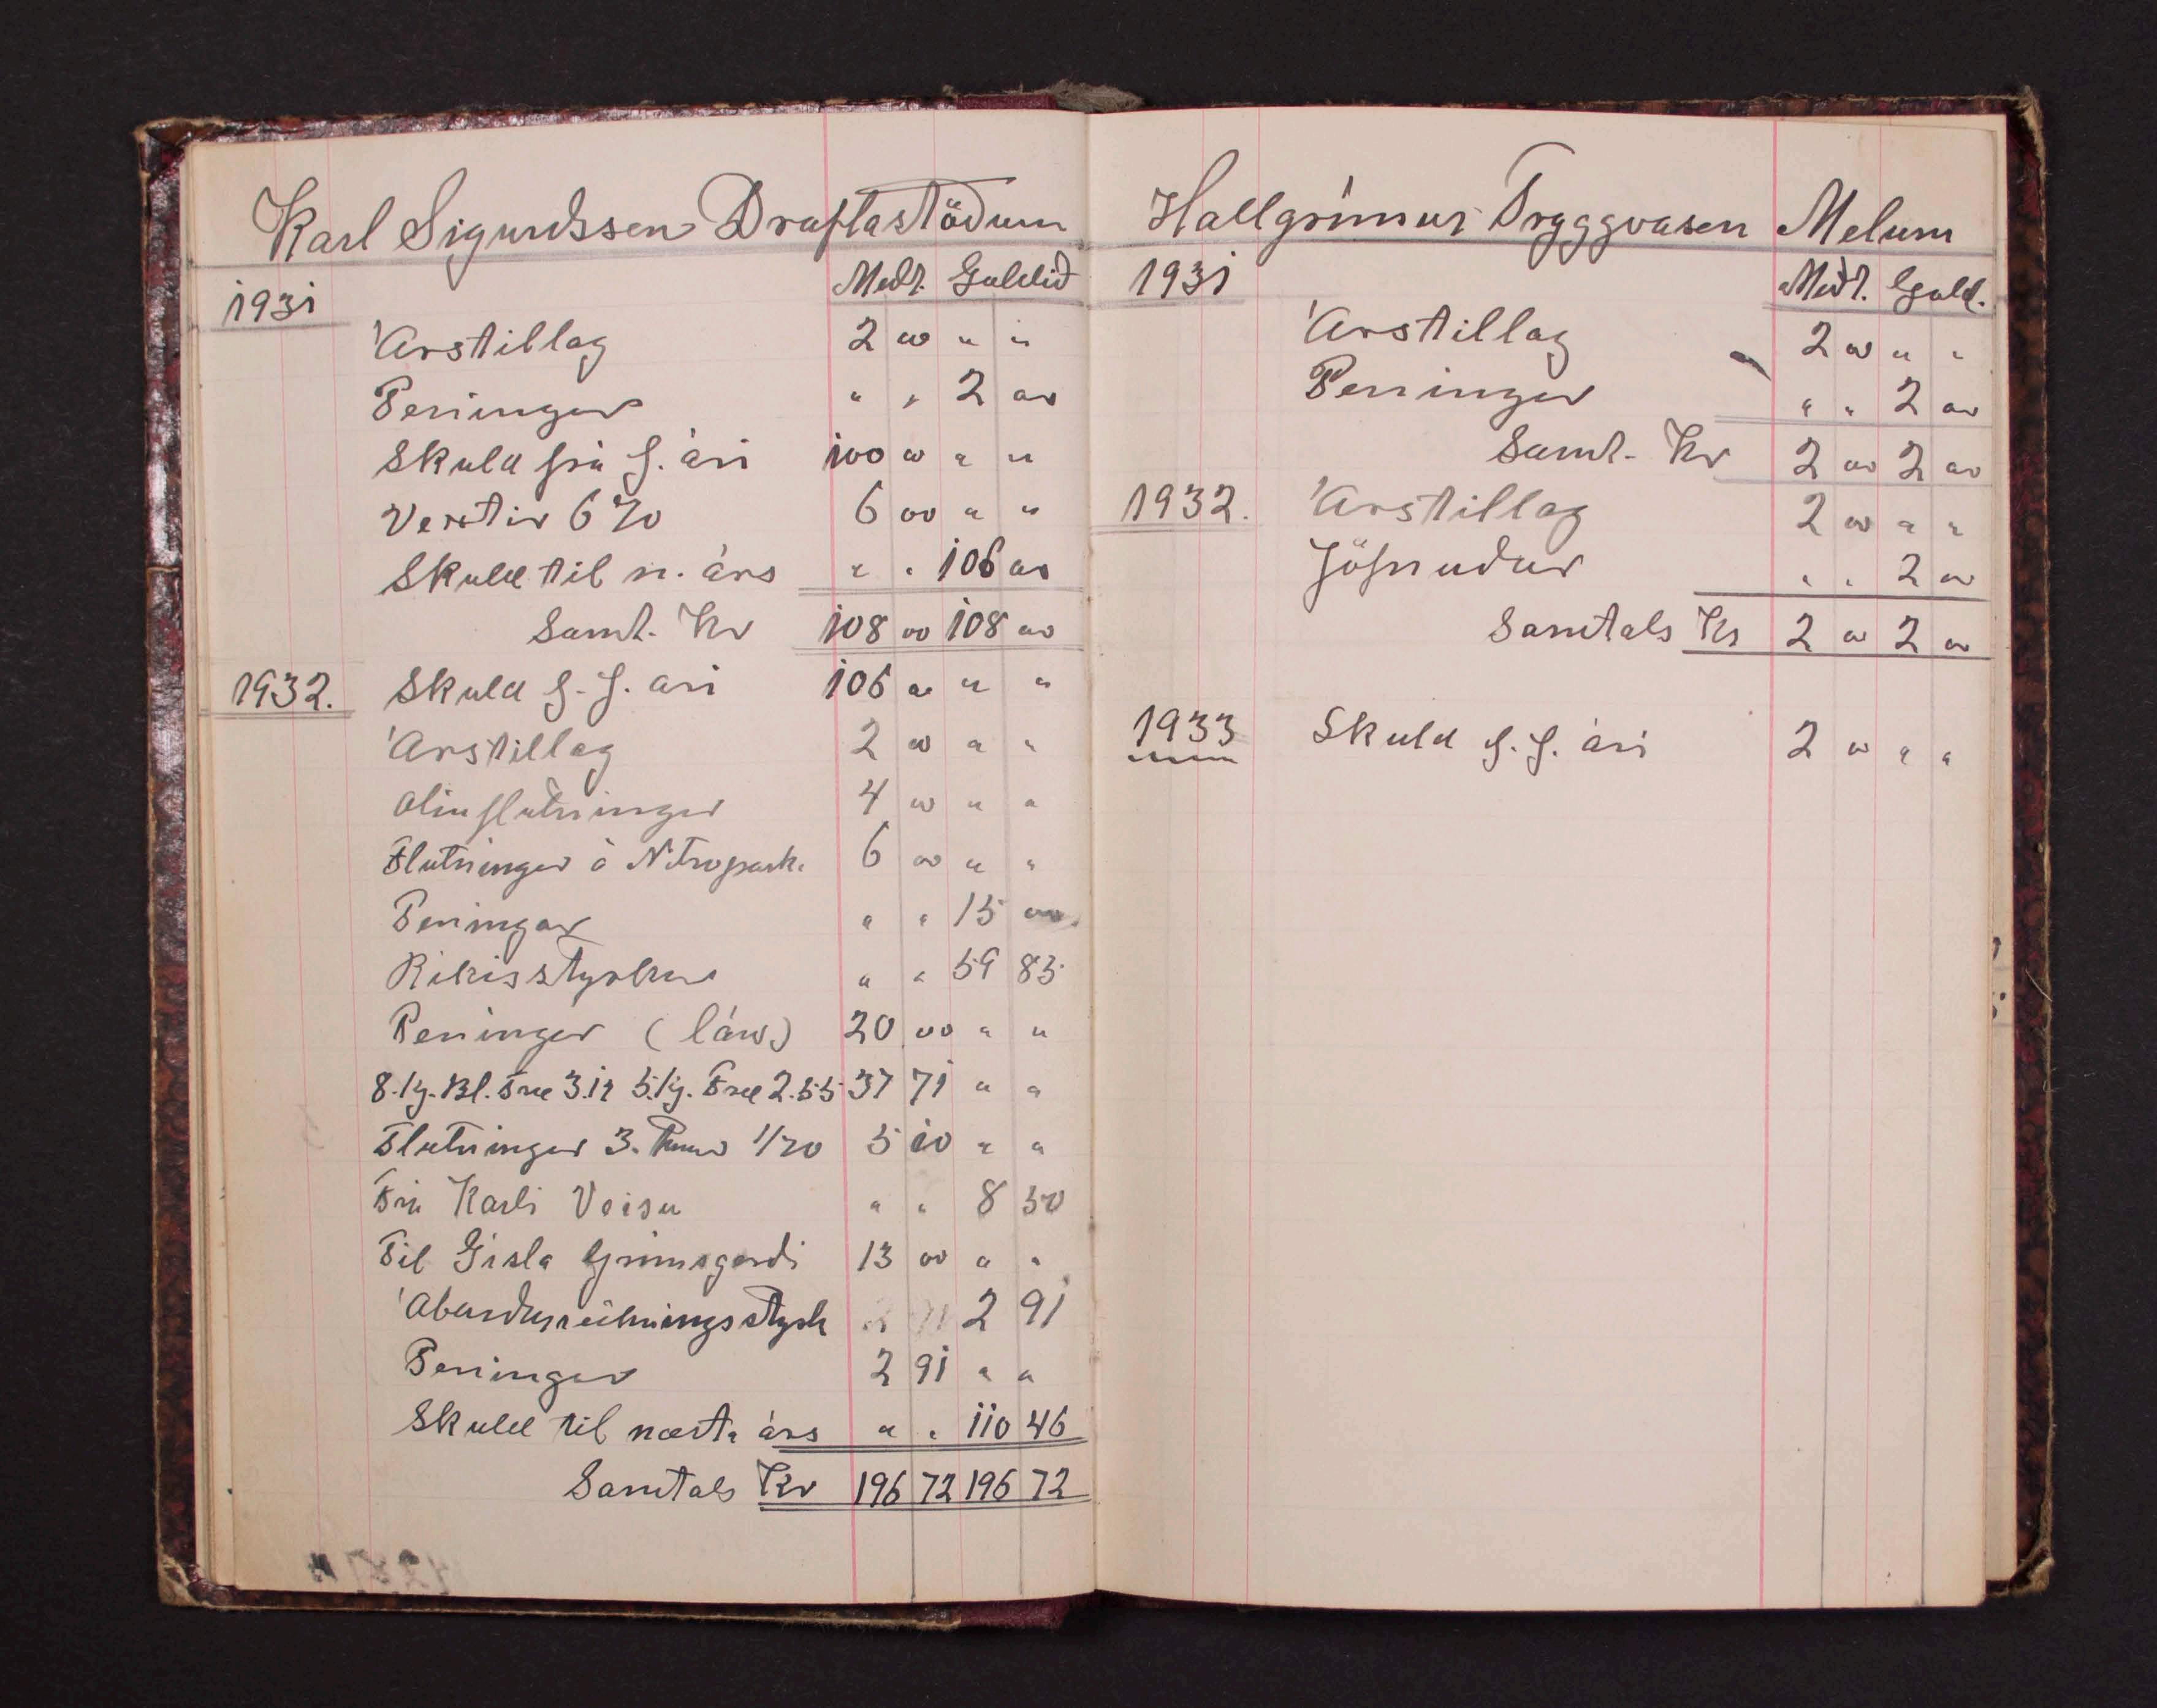 Karl Sigurdsson Draflastöðum
Medt. Goldið
1931
Árstillag 2 00 " "
Peningar " " 2 00
Skuld frá f. ári 100 00 " "
Vextir 6% 6 00 " "
Skuld til n. árs " " 106 00
Samt. Kr 108 00 108 00
1932. Skuld f. f. ári 106 00 " "
Árstillag 2 00 " "
Olíuflutningur 4 00 " "
Flutningur á Nitroposk. 6 00 " "
Peningar " " 15 00
Ríkisstyrkur " " 59 85
Peningar (lán) 20 00 " "
8. kg. Bl. Fræ 3.12 5. kg. Fræ 2.55 37 71 " "
Flutningur 3. 1/70 5 10 " "
Frá Karli Veisu " " 8 50
Til Gísla Grímsgerði 13 00 " "
Áburðarræktningsstyrk 2 91
Peningar 2 91 " "
Skuld til næsta árs " " 110 46
Samtals Kr 196 72 196 72
Hallgrímur Tryggvason Melum
1931 Medt. Gold.
Árstillag 2 00 " "
Peningar " " 2 00
Samt. Kr 2 00 2 00
1932. Árstillag 2 00 " "
Jöfnuður " " 2 00
Samtals Kr 2 00 2 00
1933 Skuld f. f. ári 2 00 " "